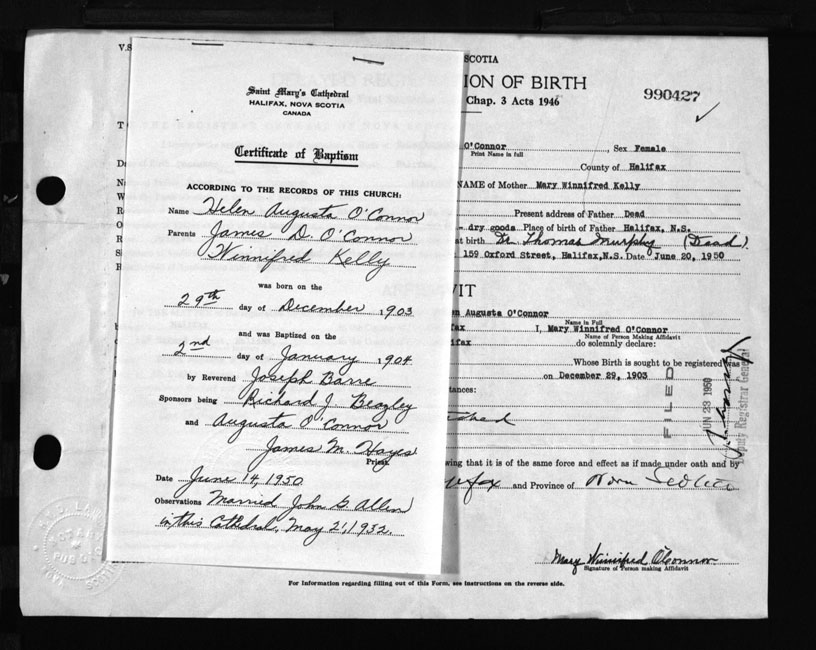 Saint Mary's Cathedral
HALIFAX, NOVA SCOTIA
CANADA
Certificate of Baptism
ACCORDING TO THE RECORDS OF THIS CHURCH:
Name Helen Augusta O'Connor
Parents James D. O'Connor
Winnifred Kelly
was born on the
29th day of December 1903
and was Baptized on the
2nd day of January 1904
by Reverend Joseph Barre
Sponsors being Richard J. Beazley
and Augusta O'Connor
James M. Hayes
Priest.
Date June 14, 1950
Observations Married John G. Allen
in this Cathedral, May 21, 1932.
V.S
SCOTIA
ION OF BIRTH
Chap. 3 Acts 1946
990427
O'Connor, Sex Female
Print Name in full
County of Halifax
NAME of Mother Mary Winnifred Kelly
Present address of Father Dead
- dry goods Place of birth of Father Halifax, N.S.
at birth Dr. Thomas Murphy (Dead)
159 Oxford Street, Halifax, N.S. Date June 20, 1950
VIT
en Augusta O'Connor
Name in Full
fax I, Mary Winnifred O'Connor
Name of Person Making Affidavit
ifax do solemnly declare:
Whose Birth is sought to be registered was
on December 29, 1903
tances:
ached
FILED
JUN 23 1950
Deputy Registrar General
wing that it is of the same force and effect as if made under oath and by
lifax and Province of Nova Scotia
Mary Winnifred O'Connor
Signature of Person making Affidavit
For Information regarding filling out of this Form, see Instructions on the reverse side.